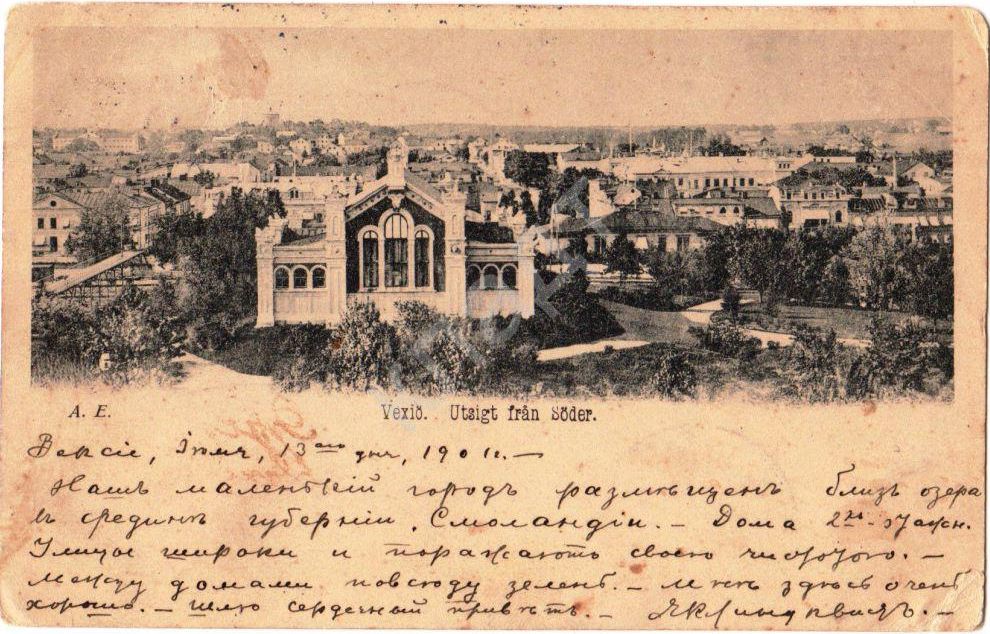 A. E.
Vexiö. Utsigt från Söder.
Вексіе, Іюля, 13го дня, 1901г. —
Нашъ маленькій городъ размѣщенъ близъ озера
въ срединѣ губерніи Смоландіи. — Дома 2хъ-этажн.
Улицы широки и поражаютъ своею чистотою. —
Между домами повсюду зелень. — Мнѣ здѣсь очень
хорошо. — Шлю сердечный привѣтъ. —